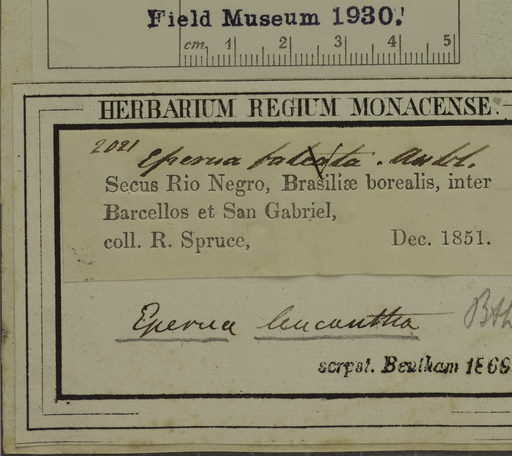 Field Museum 1930.
cm 1 2 3 4 5
HERBARIUM REGIUM MONACENSE.
2021 Eperua falcata. Aubl.
Secus Rio Negro, Brasiliæ borealis, inter
Barcellos et San Gabriel,
coll. R. Spruce, Dec. 1851.
Eperua leucantha Bth
scrpst. Bentham 1869